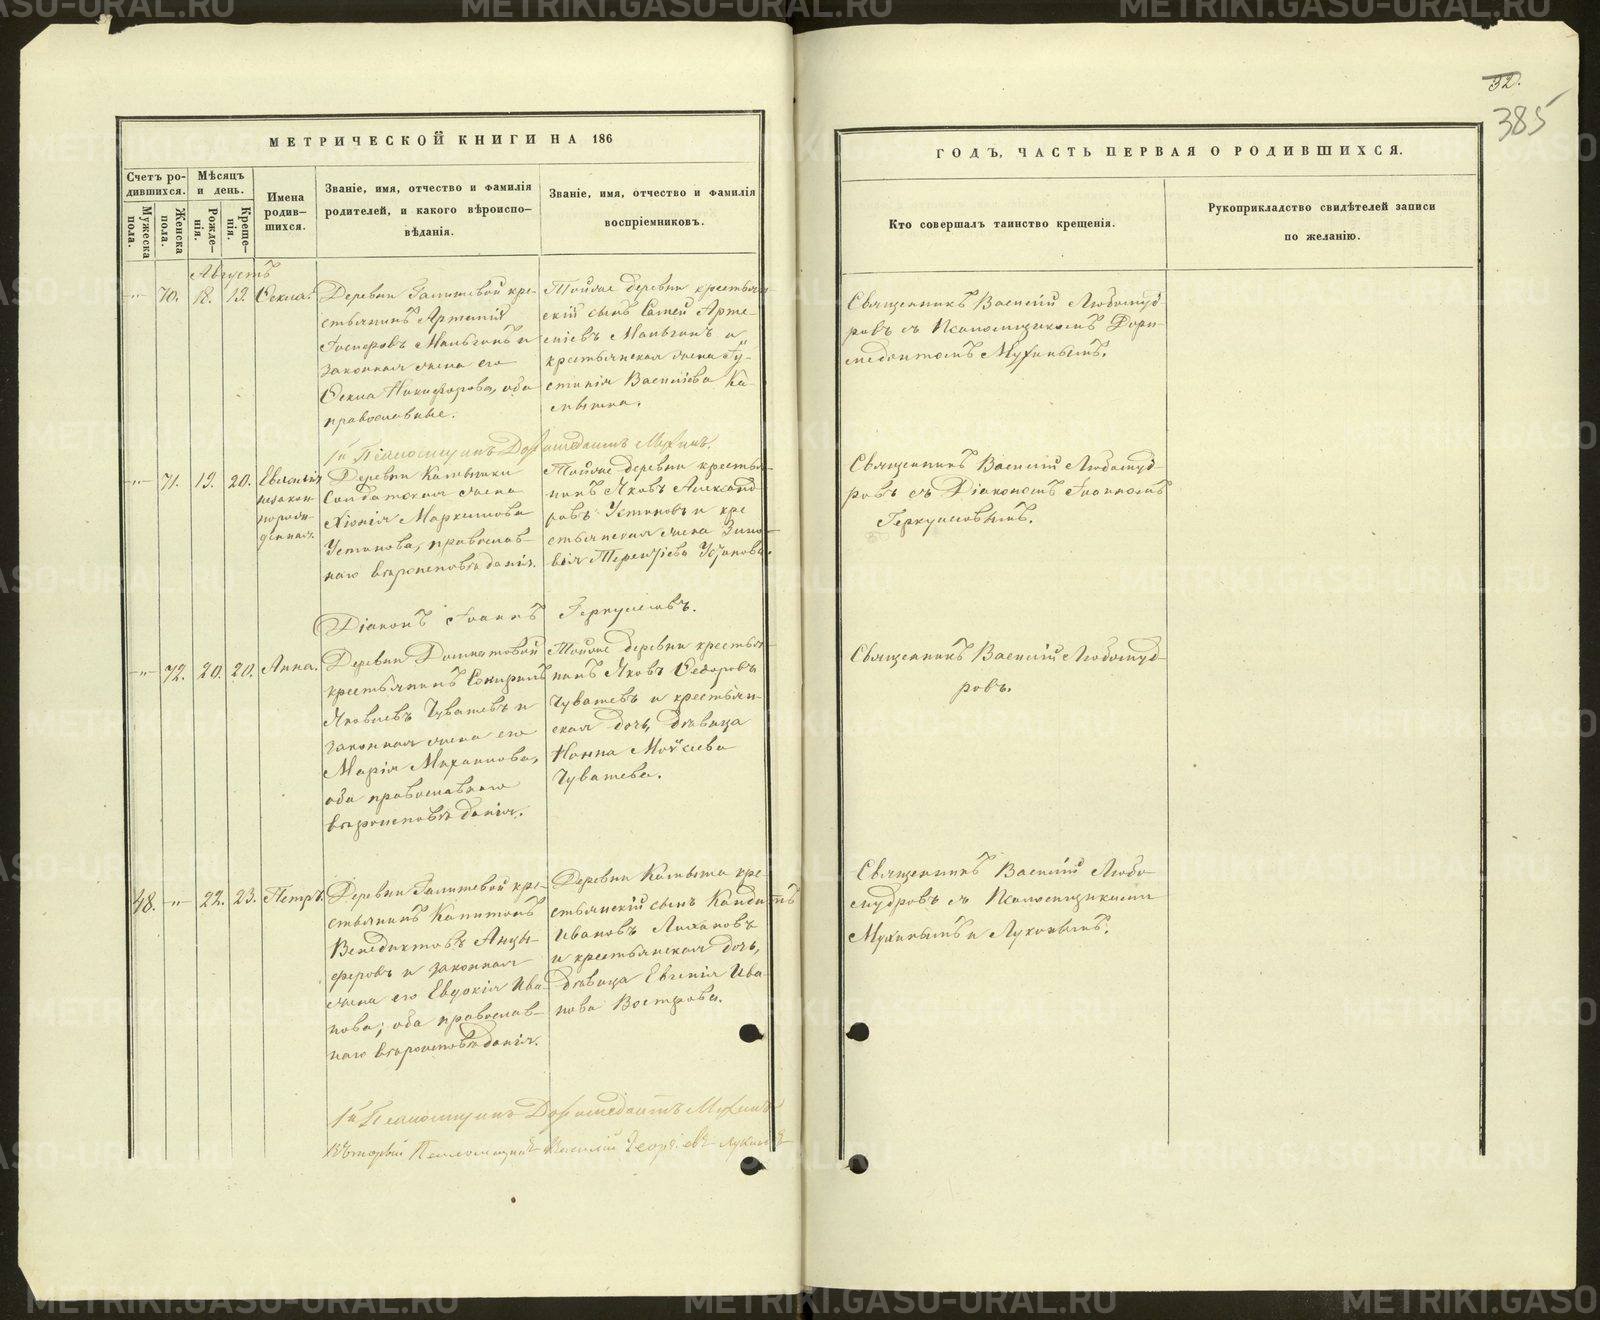 32.
385
МЕТРИЧЕСКОЙ КНИГИ НА 186
ГОДЪ, ЧАСТЬ ПЕРВАЯ О РОДИВШИХСЯ.
Счетъ ро-
дившихся.
Мужеска
пола.
Женска
пола.
Мѣсяцъ
и день.
Рожде-
нія.
Креще-
нія.
Имена
родив-
шихся.
Званіе, имя, отчество и фамилія
родителей, и какого вѣроиспо-
вѣданія.
Званіе, имя, отчество и фамилія
воспріемниковъ.
Кто совершалъ таинство крещенія.
Рукоприкладство свидѣтелей записи
по желанію.
Августъ
-"- 70. 18. 19. Ѳекла.
Деревни кре-
стьянинъ Артемій
и
законная жена его
Ѳекла Никифорова, оба
православные.
Тойже деревни крестьян-
скій сынъ Арте-
міевъ и
крестьянская жена Іу-
стинія Васильева Ка-
Священникъ Василій Любомуд-
ровъ съ Псаломщикомъ Дори-
медонтомъ Мухинымъ.
И. Псаломщикъ Доримедонтъ Мухинъ.
-"- 71. 19. 20. Евгенія
незакон-
норож-
денная.
Деревни
Солдатская жена
Хіонія Маркелова
Устинова, православ-
наго вѣроисповѣданія.
Тойже деревни крестья-
нинъ Яковъ Александ-
ровъ Устиновъ и кре-
стьянская жена Зино-
вія Терентіева Устинова.
Священникъ Василій Любомуд-
ровъ съ Діакономъ Іоанномъ
Геркулесовымъ.
Діаконъ Іоаннъ Геркулесовъ.
-"- 72. 20. 20. Анна.
Деревни
крестьянинъ Спиридонъ
Яковлевъ Чувашевъ и
законная жена его
Марія Михаилова,
оба православнаго
вѣроисповѣданія.
Тойже деревни крестья-
нинъ Яковъ Ѳедоровъ
Чувашевъ и крестьян-
ская дочь, дѣвица
Нонна Моѵсіева
Чувашева.
Священникъ Василій Любомуд-
ровъ.
48. -"- 22. 23. Петръ.
Деревни кре-
стьянинъ Капитонъ
Венедиктовъ Анцы-
феровъ и законная
жена его Евдокія Ива-
нова, оба православ-
наго вѣроисповѣданія.
Деревни кре-
стьянскій сынъ Кандидъ
Ивановъ
и крестьянская дочь,
дѣвица Евгенія Ива-
нова Вострова.
Священникъ Василій Любо-
мудровъ съ Псаломщиками
Мухинымъ и Лукинымъ.
И. Псаломщикъ Доримедонтъ Мухинъ
Вторый Псаломщикъ Василій Георгіевъ Лукинъ
METRIKI.GASO-URAL.RU